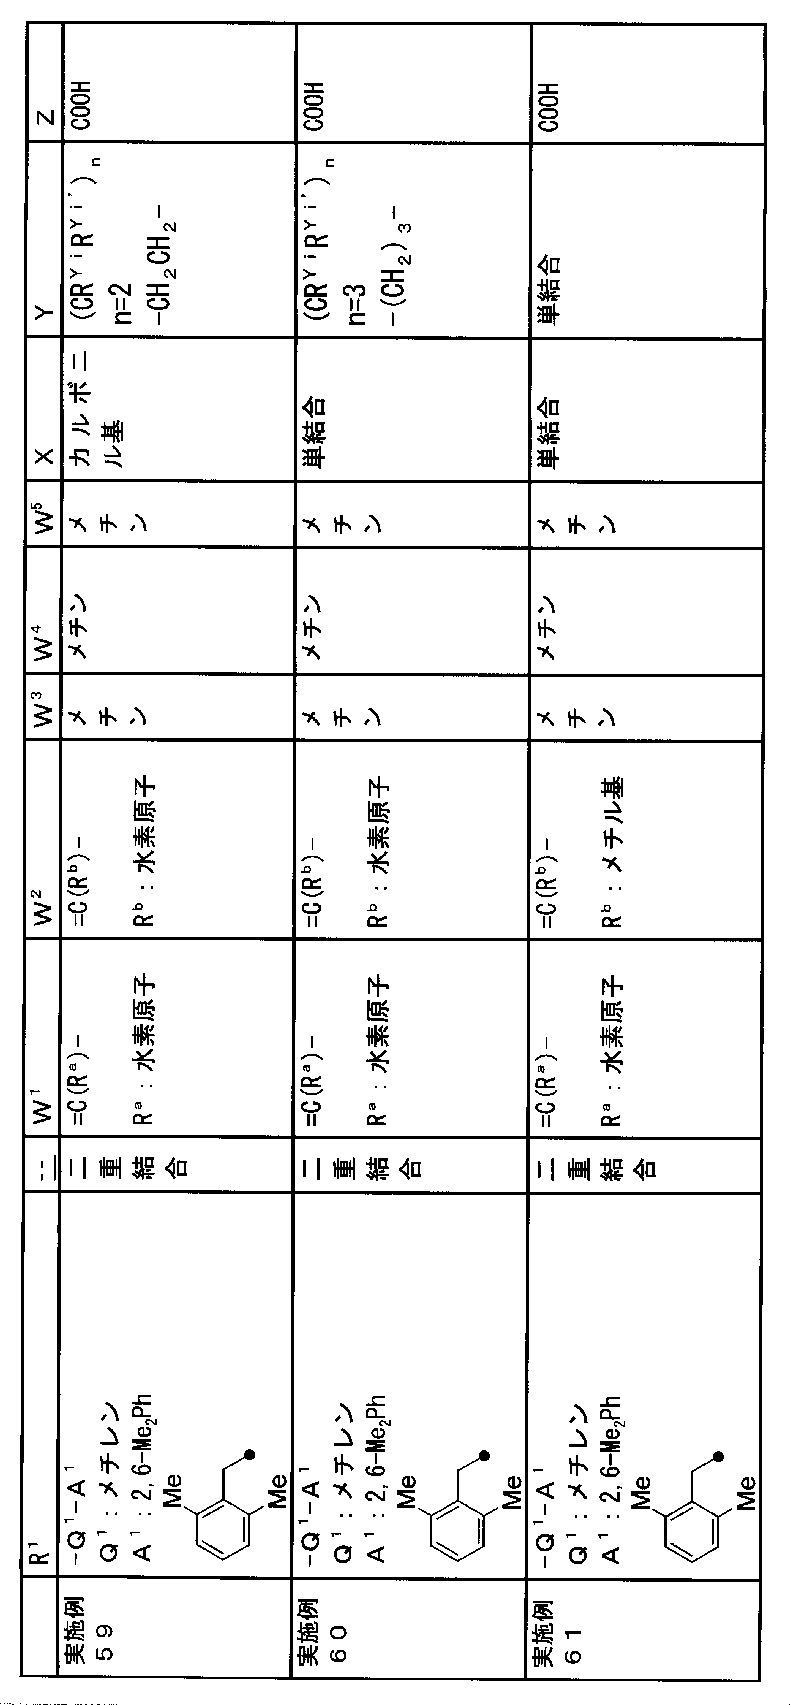 R¹ --- W¹ W² W³ W⁴ W⁵ X Y Z
実施例
59
-Q¹-A¹
Q¹:メチレン
A¹:2,6-Me₂Ph
Me
Me
二
重
結
合
=C(Rᵃ)-
Rᵃ:水素原子
=C(Rᵇ)-
Rᵇ:水素原子
メ
チ
ン
メチン
メ
チ
ン
カルボニ
ル基
(CRʸⁱRʸⁱ')ₙ
n=2
-CH₂CH₂-
COOH
実施例
60
-Q¹-A¹
Q¹:メチレン
A¹:2,6-Me₂Ph
Me
Me
二
重
結
合
=C(Rᵃ)-
Rᵃ:水素原子
=C(Rᵇ)-
Rᵇ:水素原子
メ
チ
ン
メチン
メ
チ
ン
単結合
(CRʸⁱRʸⁱ')ₙ
n=3
-(CH₂)₃-
COOH
実施例
61
-Q¹-A¹
Q¹:メチレン
A¹:2,6-Me₂Ph
Me
Me
二
重
結
合
=C(Rᵃ)-
Rᵃ:水素原子
=C(Rᵇ)-
Rᵇ:メチル基
メ
チ
ン
メチン
メ
チ
ン
単結合
単結合
COOH